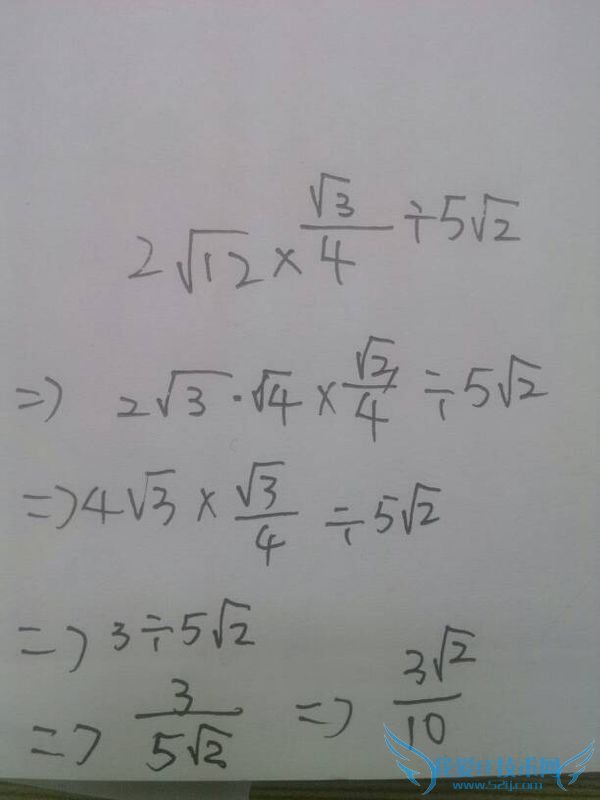 2√12 × √3/4 ÷ 5√2
=> 2√3 · √4 × √2/4 ÷ 5√2
=> 4√3 × √3/4 ÷ 5√2
=> 3 ÷ 5√2
=> 3/5√2 => 3√2/10
www.52ij.com